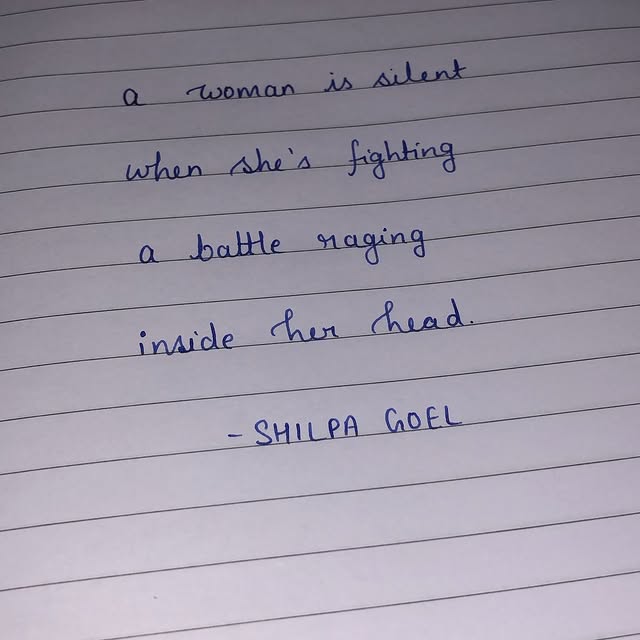 a woman is silent
when she's fighting
a battle raging
inside her head.
- SHILPA GOEL